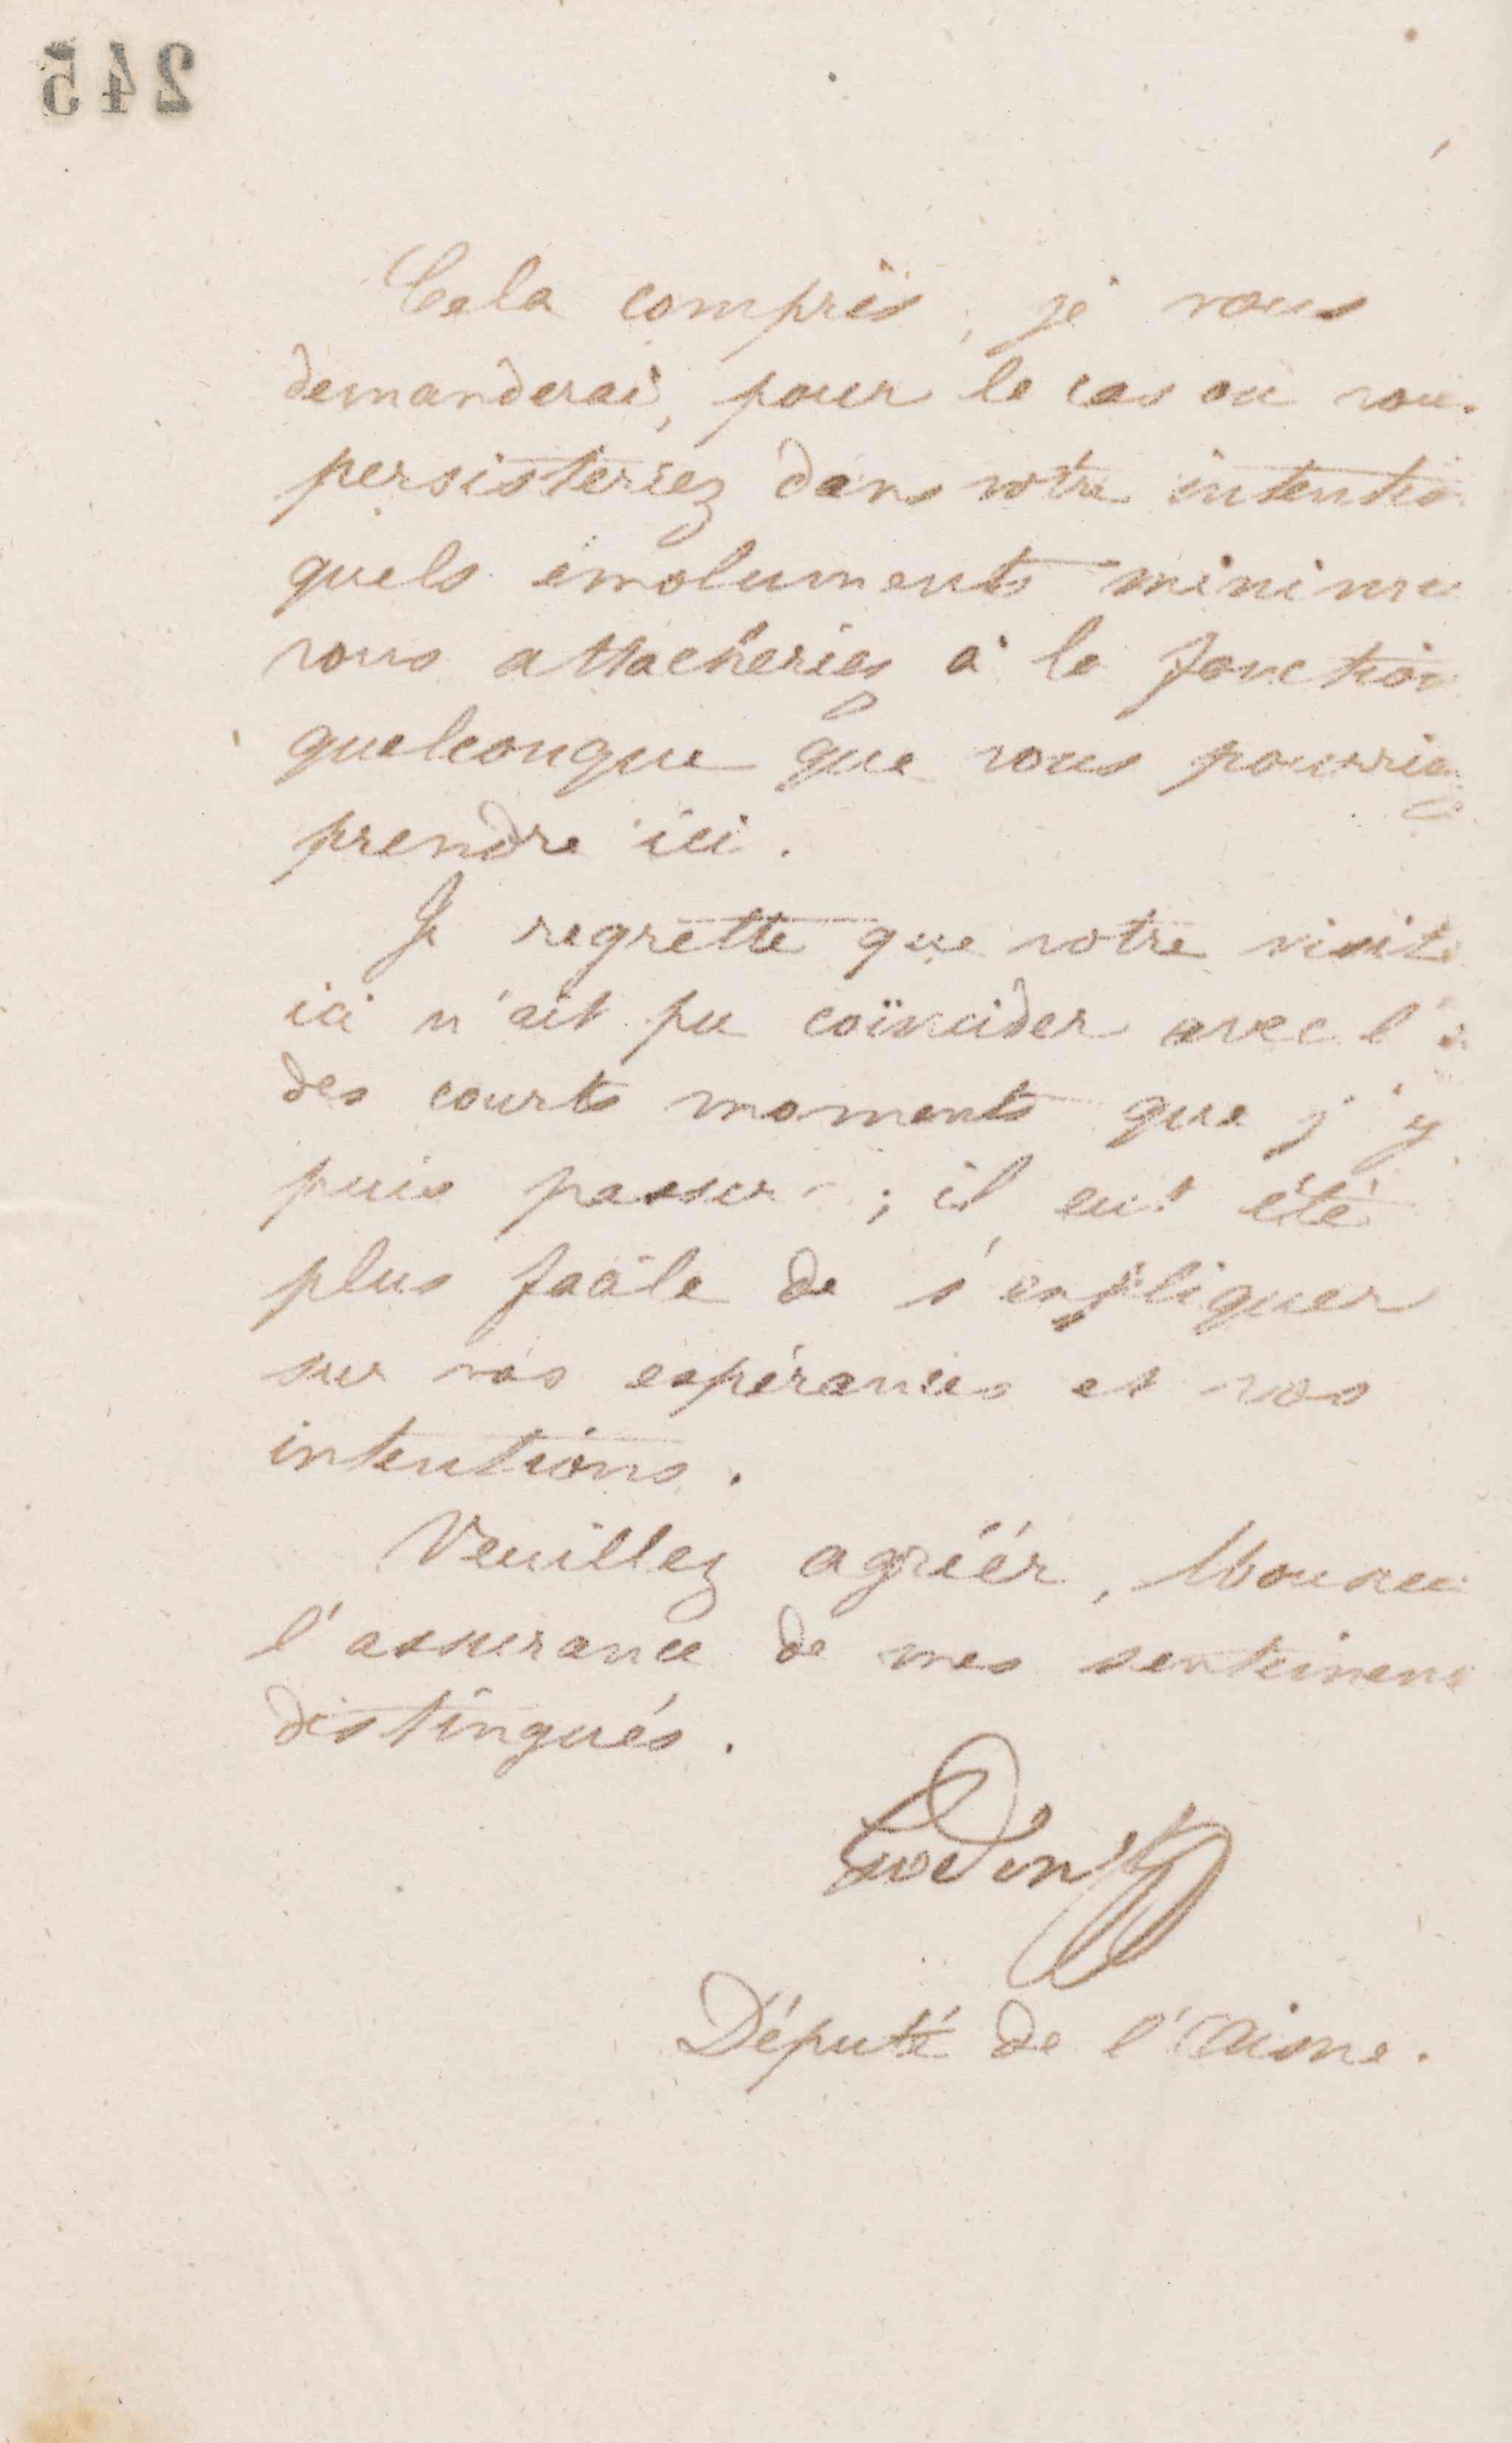 245
Cela compris, je vous
demanderai, pour le cas ou vous
persisteriez dans votre intentio
quels émoluments minimu
vous attacheriez à la fonction
quelconque que vous pourriez
prendre ici.
Je regrette que votre visite
ici n'ait pu coïncider avec l'
des courts moments que j'y
puis passer ; il eut été
plus facile de s'expliquer
sur vos espérances et vos
intentions.
Veuillez agréér, Monsieu
l'assurance de mes sentimens
distingués.
Godin
Député de l'Aisne.